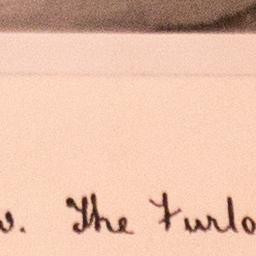 The Furlo